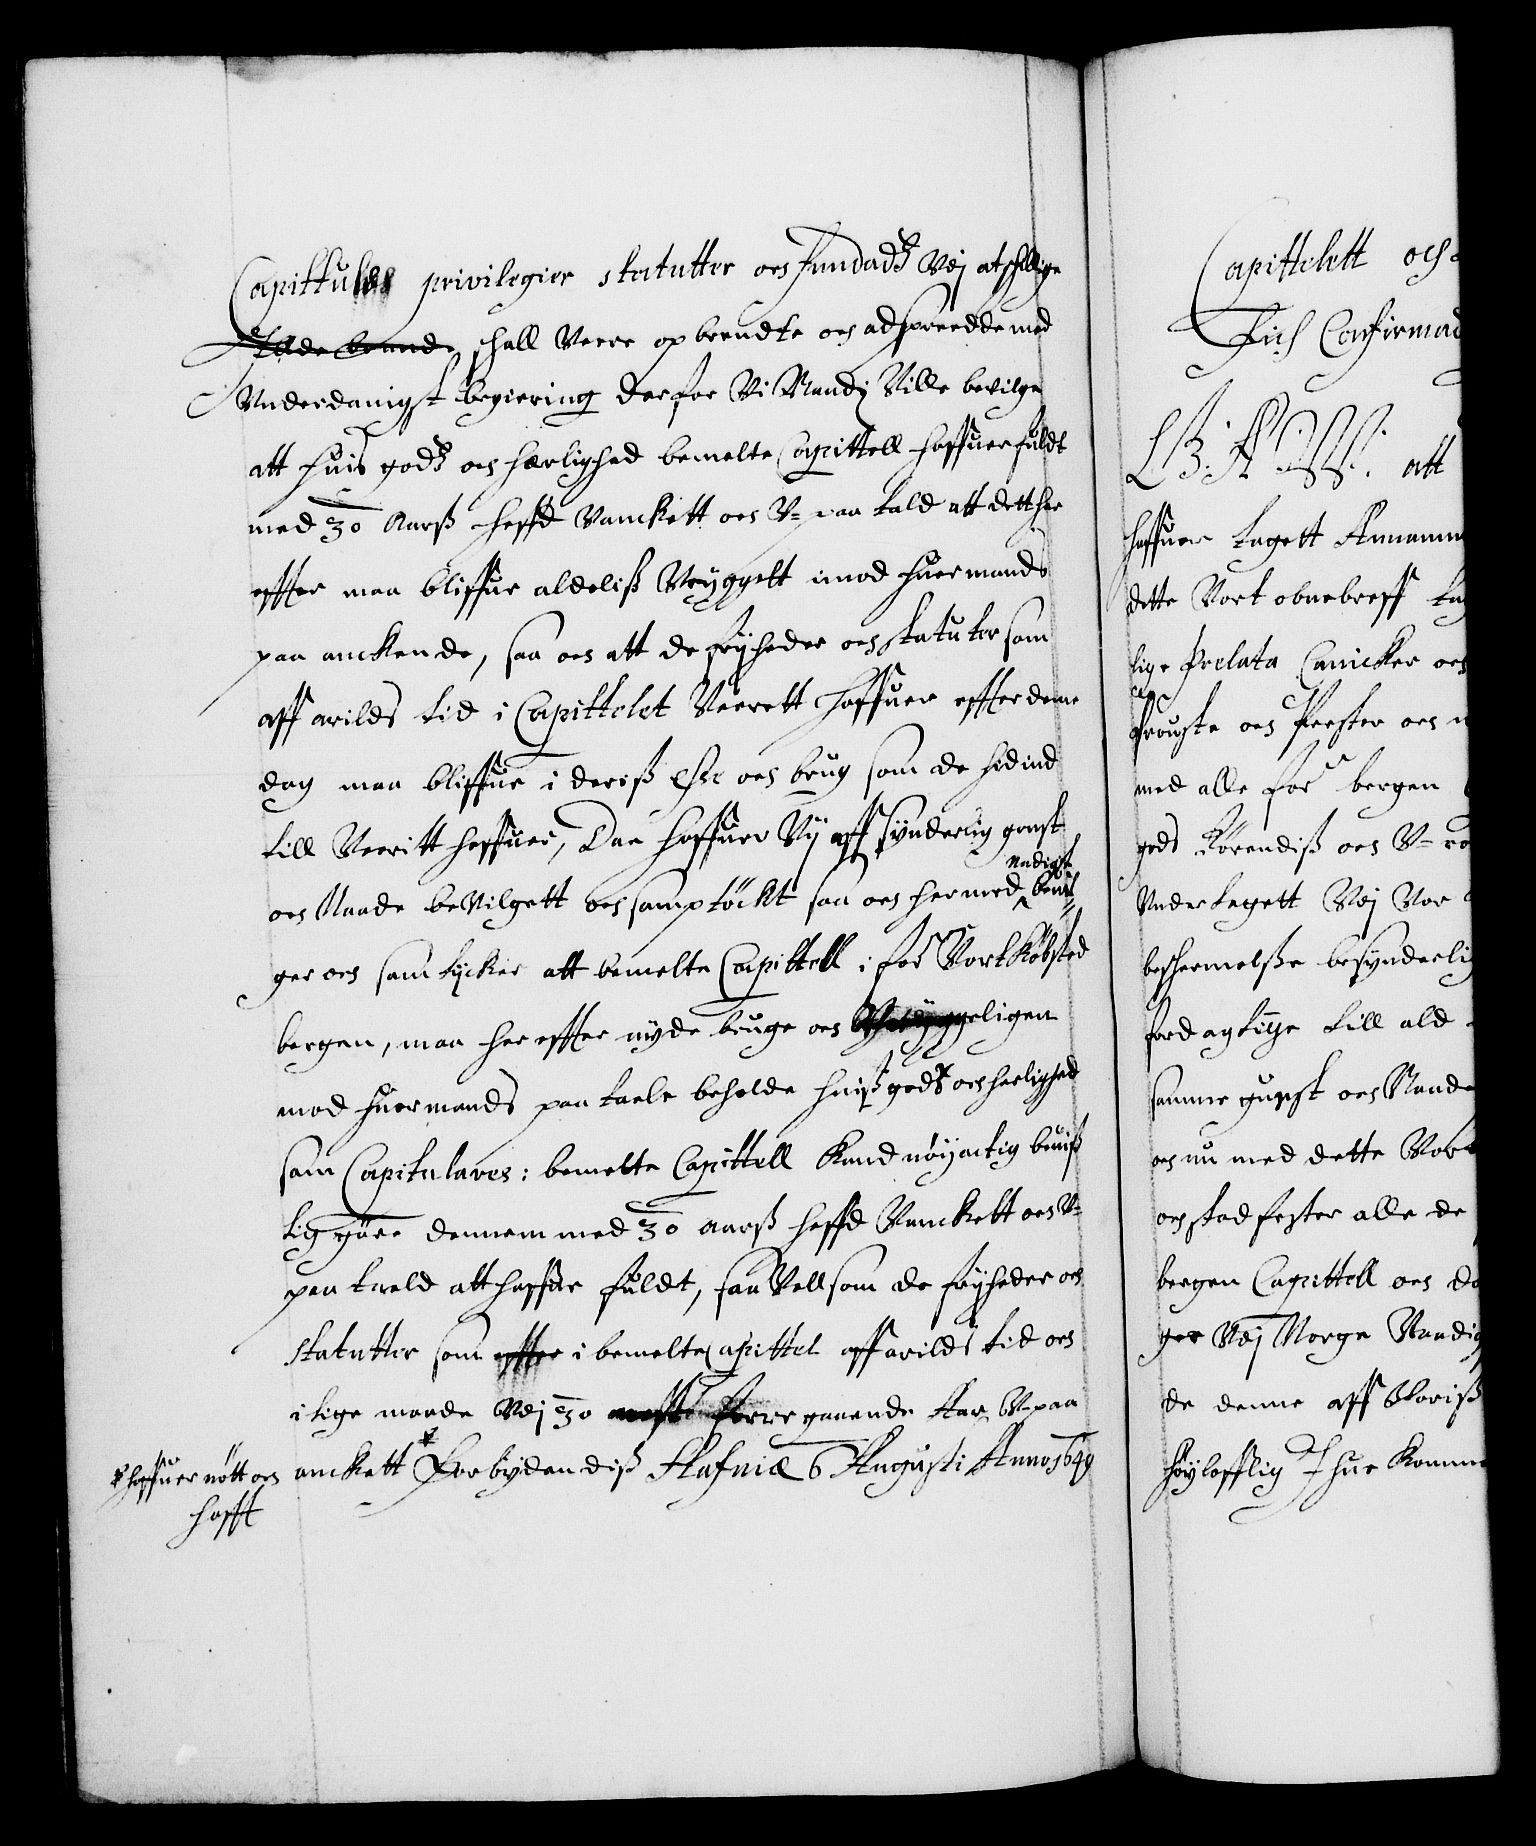 Capittulls privilegier statutter och Fundadtz Vej atschillige
Illde brande, schall Veere opbrendte och adspreedde med
Vnderdanigst begiering derfor Vi Naadigst Ville bevilge
att huis godtz och herlighed bemelte Capittell haffuer fuldt
med 30 Aarss heffd Vanckett och V= paa tald att dett her
effter maa bliffue aldeliss Vryggett imod huermands
paa anckende, saa och att de frijheder och statuter som
aff arilds tid i Capittelet Veerett haffuer effter denne
dag maa bliffue i deriss Esse och brug som de hidind
till Veeritt haffuer, Daa haffuer Vij aff synderlig gonst
och Naade beVilgett och samptöckt saa och her med naadigst bevil=
ger och samtycker att bemelte Capittell i for Vort Købsted
bergen, maa her effter nyde bruge och Vryggeligen
mod huermands paa taele beholde huiss godtz och herlighed
som Capitulares: bemelte Capittell Kand nöyactig beuiss
lig göre dennem med 30 aarss heffd Vanckett och V=
paa taeld att haffue fuldt, saa Vell som de frijheder och
statutter som effter i bemelte Capittel aff arilds tid och
i lige maade Vej 30 neste forre gaaende Aar V=paa
anckett * Forbydendiss Hafniæ 6 Augusti Anno 1649
* haffuer nött och
hafft
Capittelett och
Fich Confirmad
C. 4. G. A. W. att
haffuer tagett Annamm
dette Vort obnebreff tag
lige Prelata Canicker och
Prouste och Prester och
med alle for bergen
gods Rörendiss och V= rö
Vnder tagett Vej Vor
beschermelsse besynderlig
fordagtige till ald
samme gunst och Naade
och nu med dette Vort
och stadfester alle de
bergen Capittell och do
ger Vej Norge Naadig
de denne aff Vloriss
höylofflig Ihue Komme